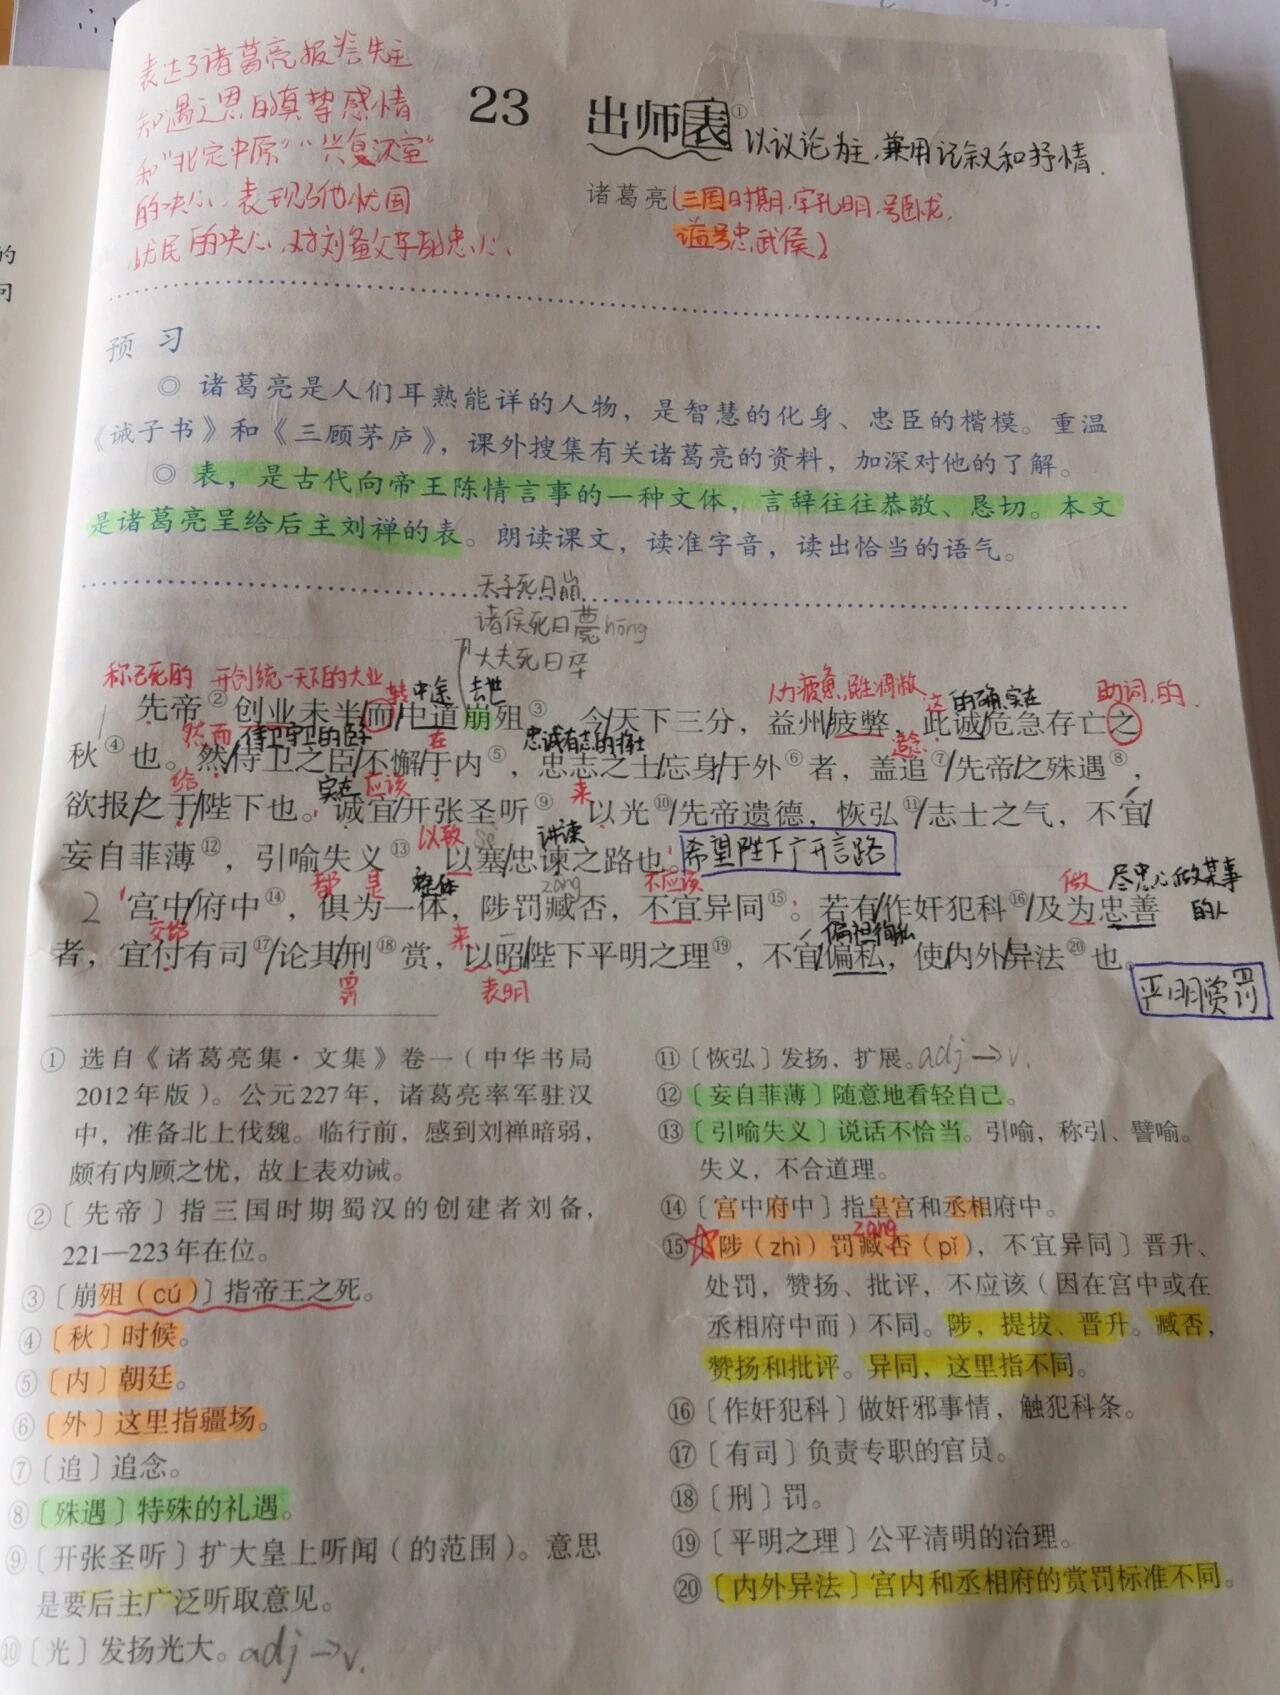 表达了诸葛亮报答先主
知遇之恩的真挚感情
和“北定中原”“兴复汉室”
的决心，表现了他忧国
忧民的决心，对刘备父子的忠心、
23 出师表①
以议论为主，兼用记叙和抒情.
诸葛亮(三国时期,字孔明,号卧龙,
谥号忠武侯)
预 习
◎ 诸葛亮是人们耳熟能详的人物，是智慧的化身、忠臣的楷模。重温
《诫子书》和《三顾茅庐》，课外搜集有关诸葛亮的资料，加深对他的了解。
◎ 表，是古代向帝王陈情言事的一种文体，言辞往往恭敬、恳切。本文
是诸葛亮呈给后主刘禅的表。朗读课文，读准字音，读出恰当的语气。
天子死曰崩
诸侯死曰薨hōng
大夫死曰卒
称已死的 开创统一天下的大业 转 中途 去世 人力疲惫 这 的确,实在 助词,的.
先帝②创业未半/而/中道崩殂③。今/天下三分，益州/疲弊，此诚/危急存亡之
然而 侍卫守卫的臣 在 忠诚有志的将士 追念
秋④也。然/侍卫之臣/不懈/于内⑤，忠志之士/忘身/于外⑥者，盖追⑦/先帝/之殊遇⑧，
给 实在 应该 来
欲报/之于/陛下也。诚宜/开张圣听⑨，以光⑩/先帝遗德，恢弘⑪/志士之气，不宜/
以致 sè 讲读
妄自菲薄⑫，引喻失义⑬，以塞/忠谏之路也。 希望陛下广开言路
都 是 整体 zāng 不应该 做 尽忠心做某事
的人
2 宫中/府中⑭，俱为一体，陟罚臧否，不宜异同⑮。若有/作奸犯科⑯/及为忠善
交给 来 偏袒徇私
者，宜付有司⑰/论其/刑⑱赏，以昭/陛下平明之理⑲，不宜/偏私，使/内外/异法⑳也。
罚 表明 严明赏罚
① 选自《诸葛亮集·文集》卷一（中华书局
2012年版）。公元227年，诸葛亮率军驻汉
中，准备北上伐魏。临行前，感到刘禅暗弱，
颇有内顾之忧，故上表劝诫。
②〔先帝〕指三国时期蜀汉的创建者刘备，
221—223年在位。
③〔崩殂（cú）〕指帝王之死。
④〔秋〕时候。
⑤〔内〕朝廷。
⑥〔外〕这里指疆场。
⑦〔追〕追念。
⑧〔殊遇〕特殊的礼遇。
⑨〔开张圣听〕扩大皇上听闻（的范围）。意思
是要后主广泛听取意见。
⑩〔光〕发扬光大。adj→v.
⑪〔恢弘〕发扬，扩展。adj→v.
⑫〔妄自菲薄〕随意地看轻自己。
⑬〔引喻失义〕说话不恰当。引喻，称引、譬喻。
失义，不合道理。
⑭〔宫中府中〕指皇宫和丞相府中。
zāng
⑮〔陟（zhì）罚臧否（pǐ），不宜异同〕晋升、
处罚，赞扬、批评，不应该（因在宫中或在
丞相府中而）不同。陟，提拔、晋升。臧否，
赞扬和批评。异同，这里指不同。
⑯〔作奸犯科〕做奸邪事情，触犯科条。
⑰〔有司〕负责专职的官员。
⑱〔刑〕罚。
⑲〔平明之理〕公平清明的治理。
⑳〔内外异法〕宫内和丞相府的赏罚标准不同。
的